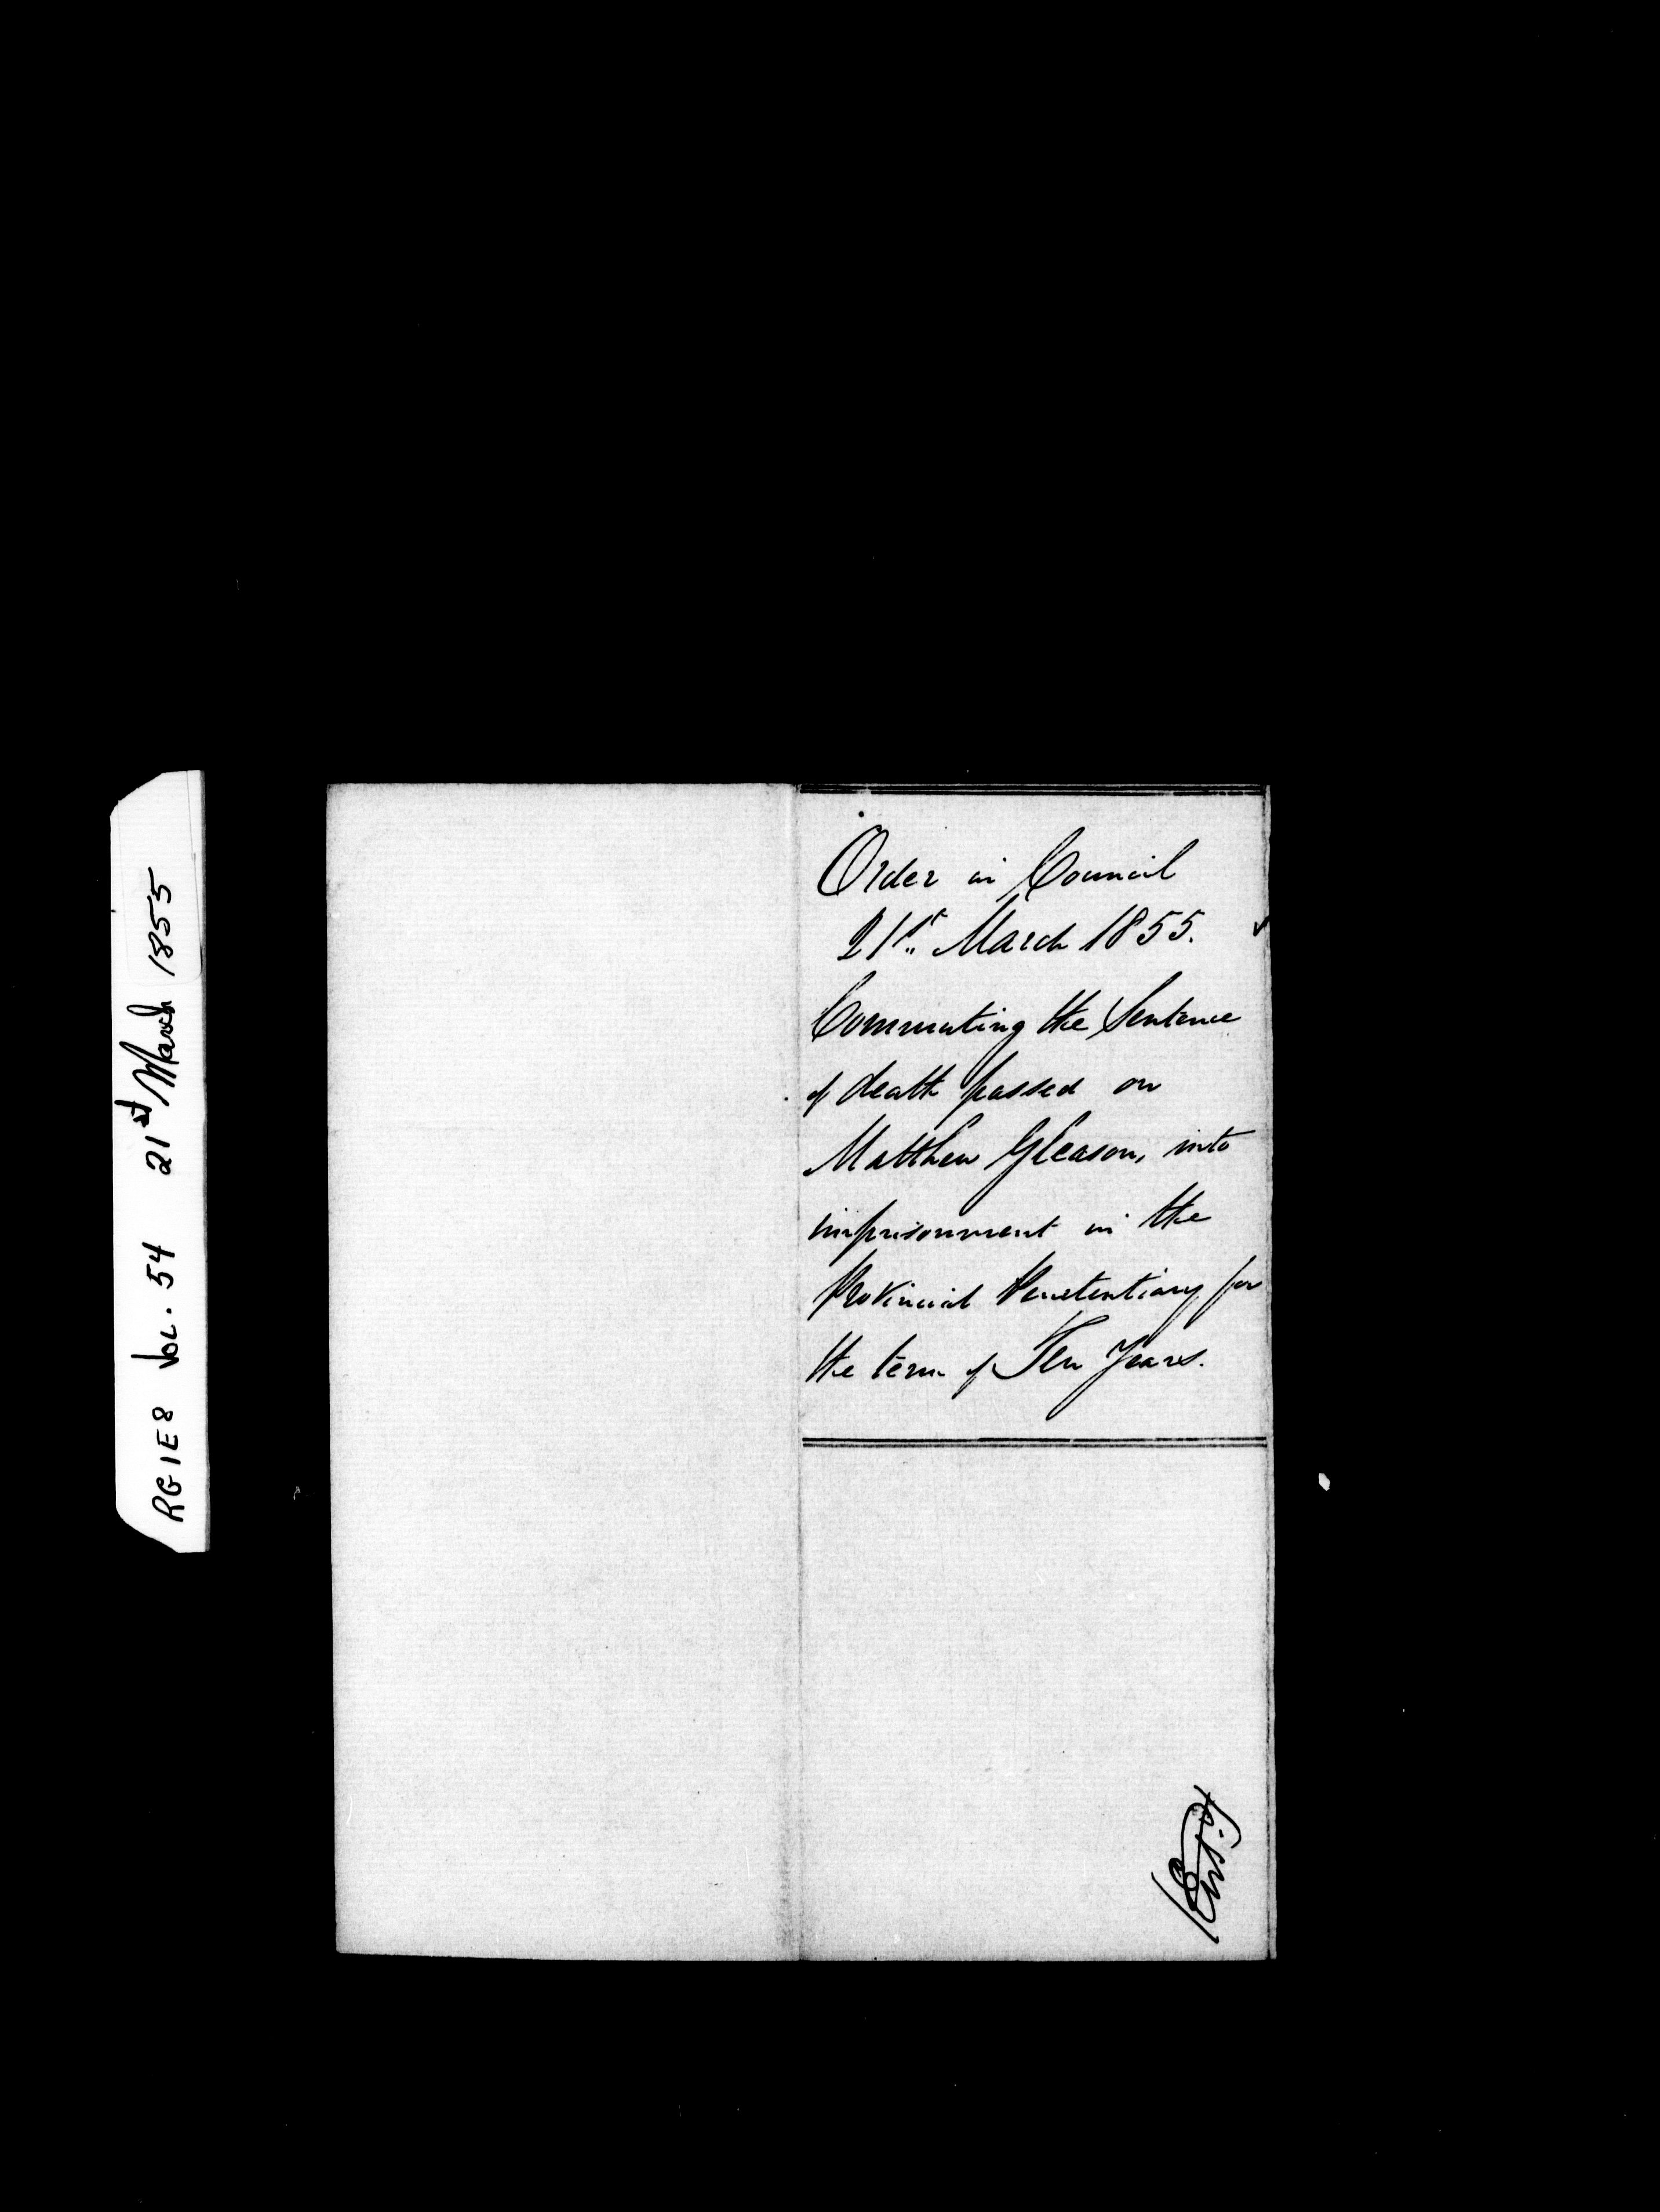 RG1E8 VOL. 54 21st March 1855
Order in Council
21st March 1855.
Commuting the Sentence
of death passed on
Matthew Gleason, into
imprisonment in the
Provincial Penetentiary for
the term of Ten Years.